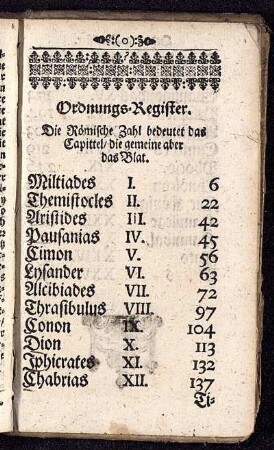 :(o):
Ordnungs-Register.
Die Römische Zahl bedeutet das
Capittel/ die gemeine aber
das Blat.
Miltiades I. 6
Themistocles II. 22
Aristides III. 42
Pausanias IV. 45
Cimon V. 56
Lysander VI. 63
Alcibiades VII. 72
Thrasibulus VIII. 97
Conon IX. 104
Dion X. 113
Iphicrates XI. 132
Chabrias XII. 137
Ti-